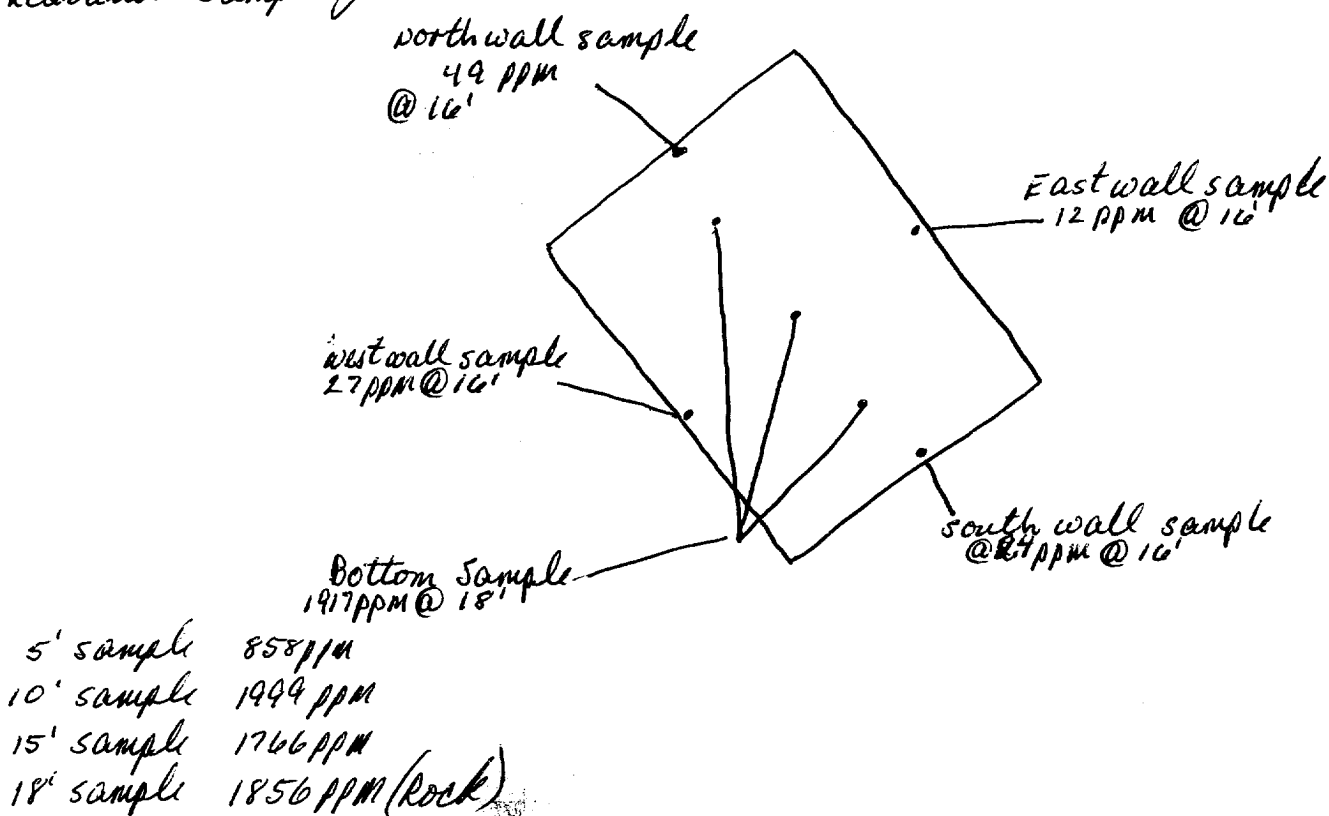 Sample
North wall sample
49 ppm
@ 16'
East wall sample
12 ppm @ 16'
west wall sample
27 ppm @ 16'
south wall sample
@ 24 ppm @ 16'
Bottom Sample
1917 ppm @ 18'
5' sample 858 ppm
10' sample 1999 ppm
15' sample 1766 ppm
18' sample 1856 PPM (Rock)